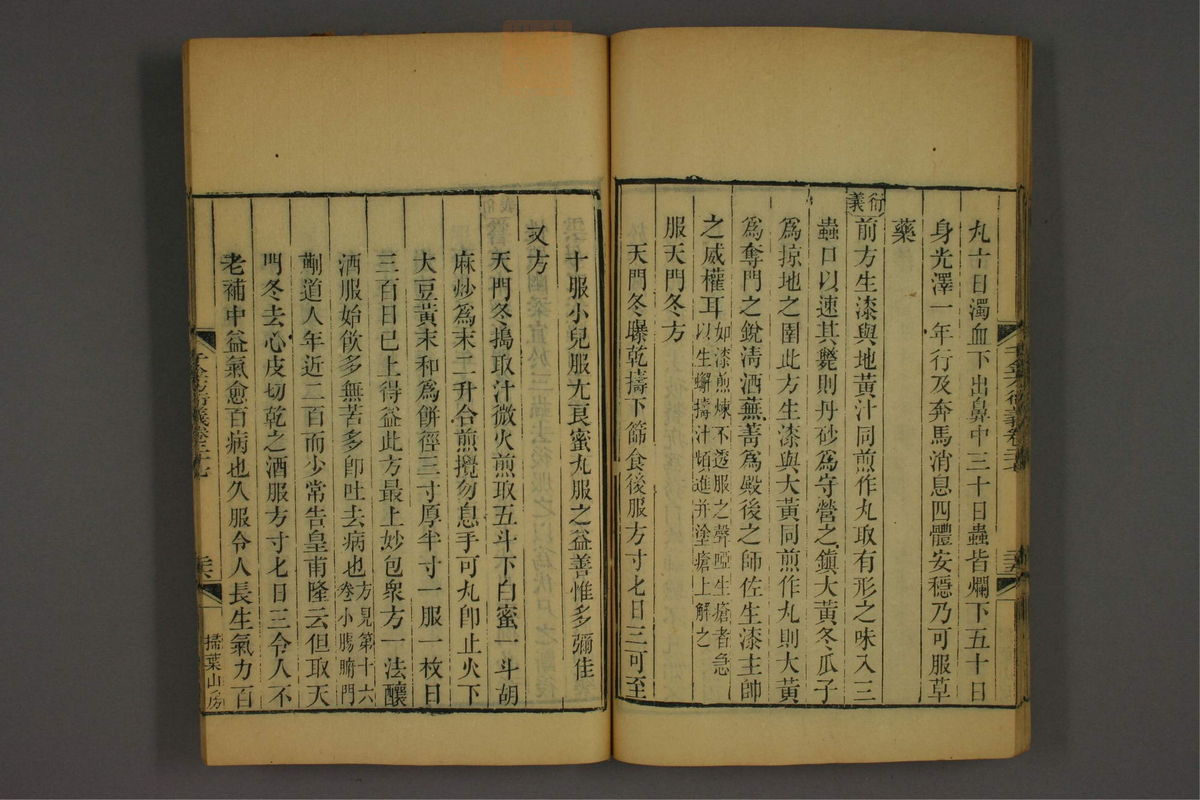 丸十日濁血下出鼻中三十日蟲皆爛下五十日
身光澤一年行及奔馬消息四體安穩乃可服草
藥
衍義
前方生漆與地黃汁同煎作丸取有形之味入三
蟲口以速其斃則丹砂爲守營之鎮大黃冬瓜子
爲掠地之圍此方生漆與大黃同煎作丸則大黃
爲奪門之銳清酒蕪菁爲殿後之師佐生漆主帥
之威權耳如漆煎煉不透服之聲啞生瘡者急
以生蠏擣汁頻進幷塗瘡上解之
服天門冬方
天門冬曝乾擣下篩食後服方寸七日三可至
十服小兒服尤良蜜丸服之益善惟多彌佳
又方
天門冬搗取汁微火煎取五斗下白蜜一斗胡
麻炒爲末二升合煎攪勿息手可丸卽止火下
大豆黃末和爲餅徑三寸厚半寸一服一枚日
三百日已上得益此方最上妙包衆方一法釀
酒服始飲多無苦多卽吐去病也方見第十六
卷小腸腑門
蒯道人年近二百而少常告皇甫隆云但取天
門冬去心皮切乾之酒服方寸七日三令人不
老補中益氣愈百病也久服令人長生氣力百
千金方衍義卷二十七
掃葉山房